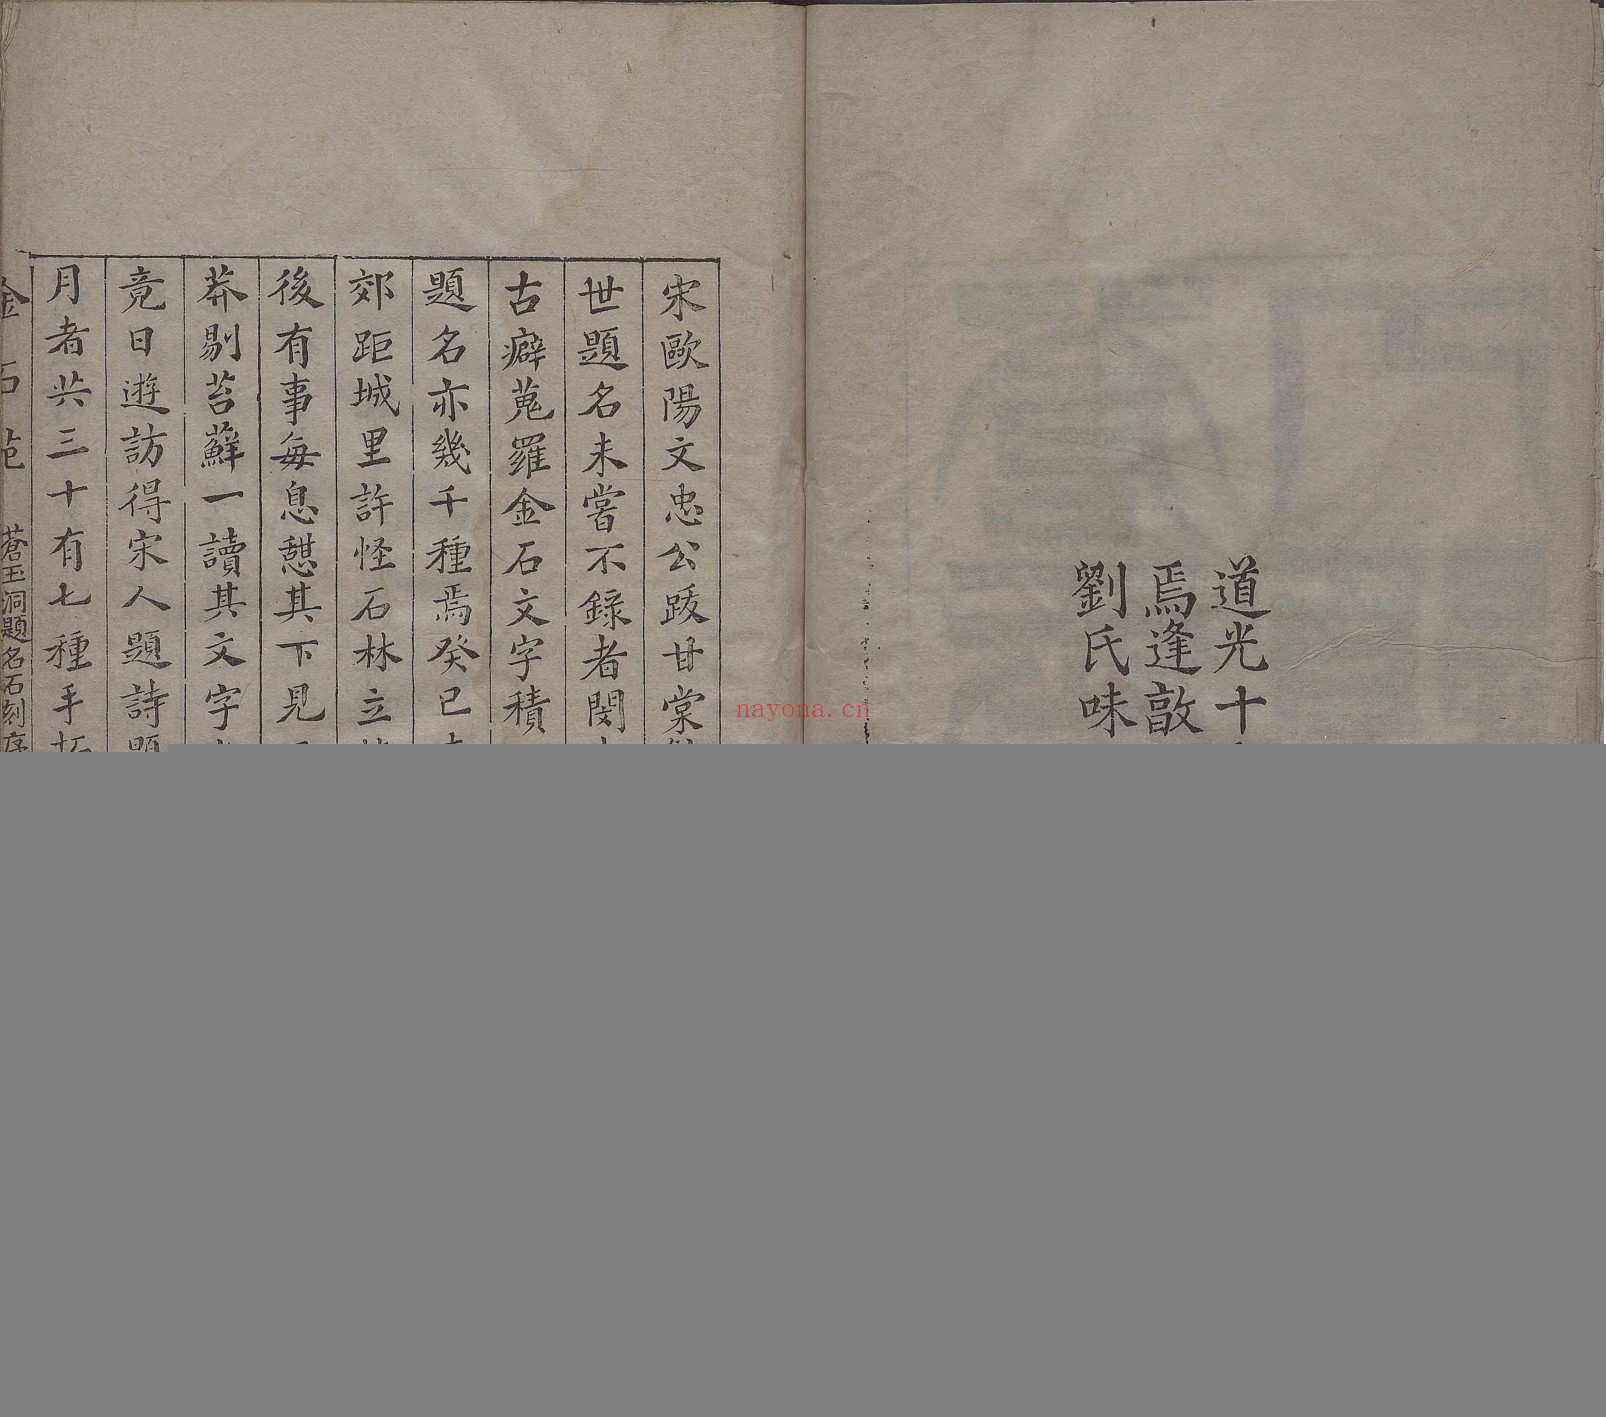 道光十
焉逢敦
劉氏味
宋歐陽文忠公跋甘棠
世題名未嘗不錄者閔
古癖蒐羅金石文字積
題名亦幾千種焉癸巳
郊距城里許怪石林立
後有事每息憇其下見
莽剔苔蘚一讀其文字
竟日遊訪得宋人題詩
月者共三十有七種手拓
金石苑 蒼玉洞題名石刻序
nayona.cn